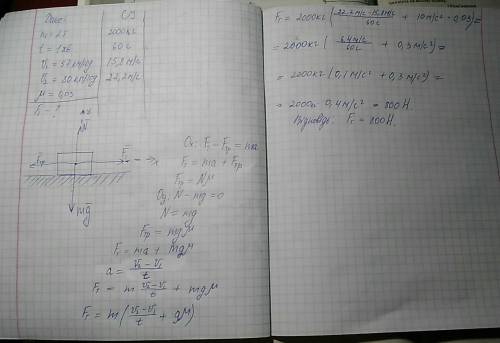 Дано:
СІ
m = 2т
2000кг
t = 1хв
60с
V₁ = 57 км/год
15,8 м/с
V₂ = 80 км/год
22,2 м/с
μ = 0,03
F₁ - ?
N
F
x
mg
Ox: F₁ - Fтр = ma
F₁ = ma + Fтр
Fтр = Nμ
Oy: N - mg = 0
N = mg
Fтр = mgμ
F₁ = ma + mgμ
a = (V₂ - V₁)/t
F₁ = m (V₂ - V₁)/t + mgμ
F₁ = m ((V₂ - V₁)/t + gμ)
F₁ = 2000кг ((22,2 м/с - 15,8 м/с)/60с + 10 м/с² · 0,03) =
= 2000кг (6,4 м/с/60с + 0,3 м/с²) =
= 2000кг (0,1 м/с² + 0,3 м/с²) =
= 2000 · 0,4 м/с² = 800 Н.
Відповідь: F₁ = 800 Н.